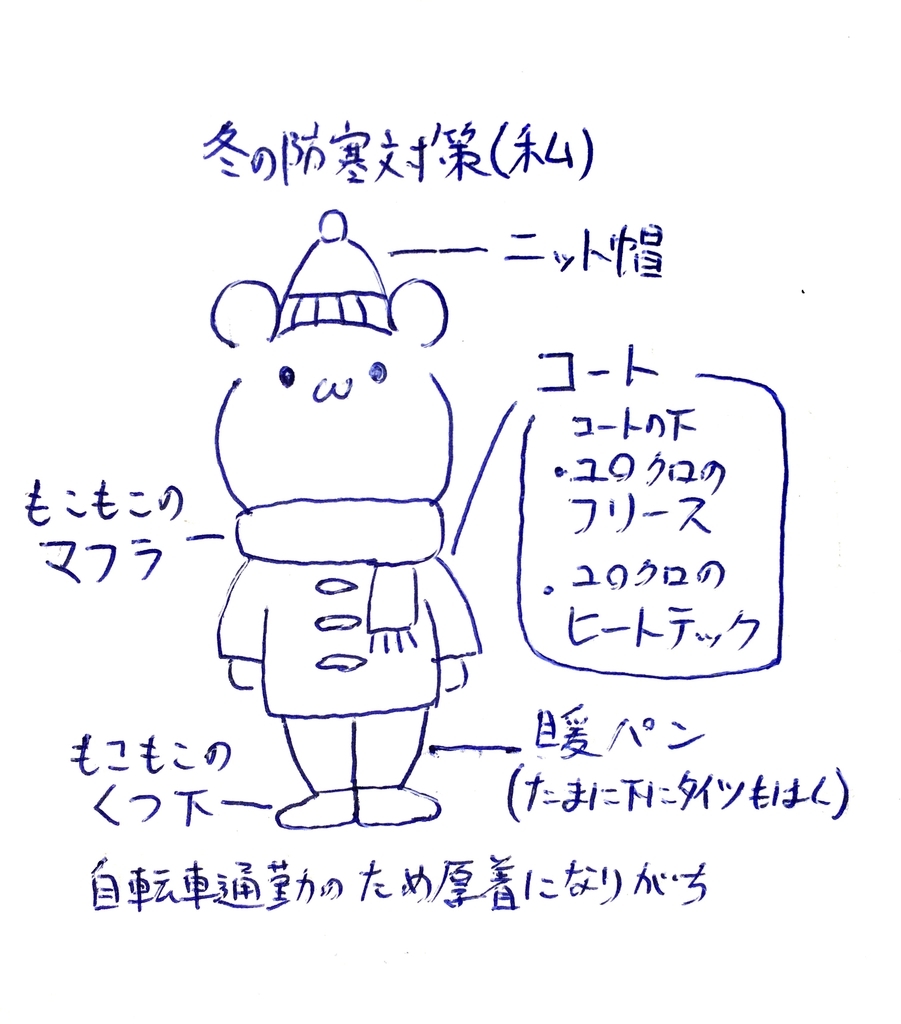 冬の防寒対策(私)
ニット帽
コート
コートの下
・ユ〇クロの
フリース
・ユ〇クロの
ヒートテック
もこもこの
マフラ
暖パン
(たまに下にタイツもはく)
もこもこの
くつ下
自転車通勤のため厚着になりがち